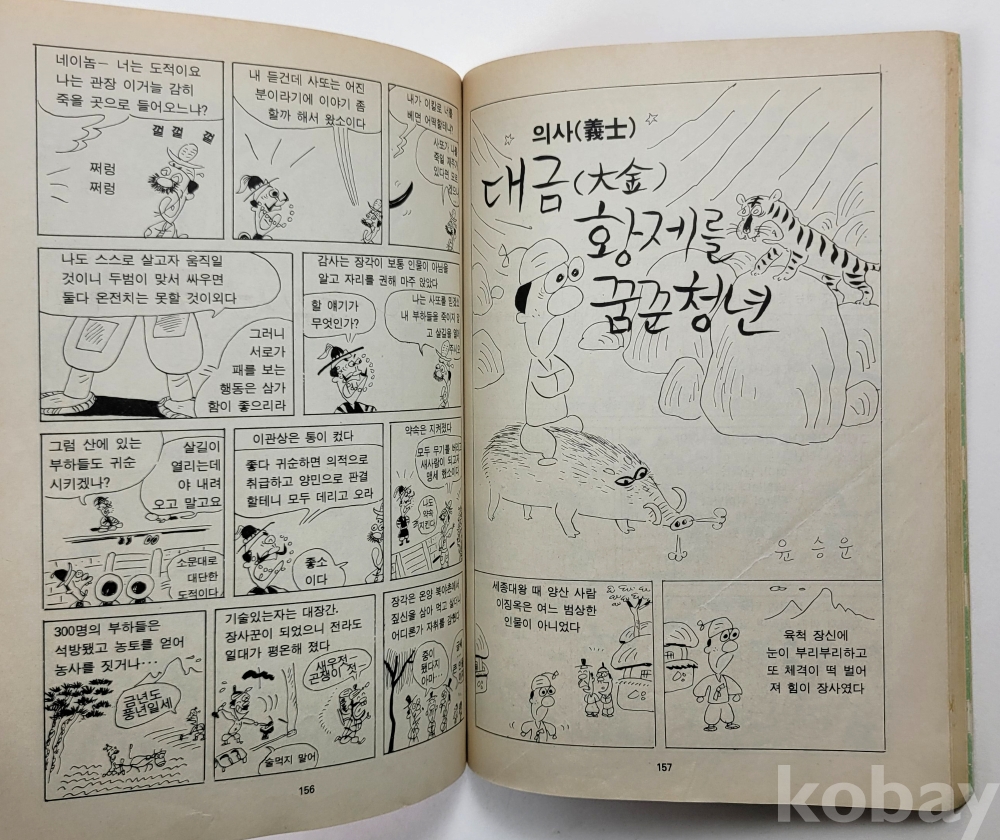 네이놈— 너는 도적이요
나는 관장 이거늘 감히
죽을 곳으로 들어오느냐?
껄 껄 껄
쩌렁
쩌렁
내 듣건데 사또는 어진
분이라기에 이야기 좀
할까 해서 왔소이다
내가 이칼로 너를
베면 어떡할테냐?
사또가 나를
죽일 재주가
있다면 모르
겠으나
나도 스스로 살고자 움직일
것이니 두범이 맞서 싸우면
둘다 온전치는 못할 것이외다
그러니
서로가
패를 보는
행동은 삼가
함이 좋으리라
감사는 장각이 보통 인물이 아님을
알고 자리를 권해 마주 앉았다
할 얘기가
무엇인가?
나는 사또를 믿겠소
내 부하들을 죽이지 말
고 살길을 열어
주시오
그럼 산에 있는
부하들도 귀순
시키겠나?
살길이
열리는데
야 내려
오고 말고요
소문대로
대단한
도적이다
이관상은 통이 컸다
좋다 귀순하면 의적으로
취급하고 양민으로 판결
할테니 모두 데리고 오라
좋소
이다
약속은 지켜졌다
모두 무기를 버리고
새사람이 되고자
맹세 했소이다
나도
약속
지킨다
300명의 부하들은
석방됐고 농토를 얻어
농사를 짓거나…
금년도
풍년일세
기술있는자는 대장간,
장사꾼이 되었으니 전라도
일대가 평온해 졌다
새우젓—
곤쟁이 젓
술먹지 말어
장각은 온양 북아촌에서
짚신을 삼아 먹고 살다가
어디론가 자취를 감췄다
중이
됐다지
아마…
156
의사(義士)
대금(大金)
황제를
꿈꾼청년
윤승운
세종대왕 때 양산 사람
이징옥은 여느 범상한
인물이 아니었다
육척 장신에
눈이 부리부리하고
또 체격이 떡 벌어
져 힘이 장사였다
157
kobay